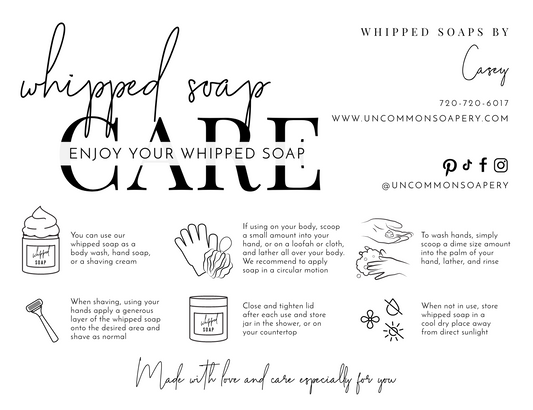 WHIPPED SOAPS BY
Casey
720-720-6017
WWW.UNCOMMONSOAPERY.COM
@UNCOMMONSOAPERY
whipped soap
CARE
ENJOY YOUR WHIPPED SOAP
whipped
SOAP
You can use our
whipped soap as a
body wash, hand soap,
or a shaving cream
If using on your body, scoop
a small amount into your
hand, or on a loofah or cloth,
and lather all over your body.
We recommend to apply
soap in a circular motion
To wash hands, simply
scoop a dime size amount
into the palm of your
hand, lather, and rinse
When shaving, using your
hands apply a generous
layer of the whipped soap
onto the desired area and
shave as normal
whipped
SOAP
Close and tighten lid
after each use and store
jar in the shower, or on
your countertop
When not in use, store
whipped soap in a
cool dry place away
from direct sunlight
Made with love and care especially for you